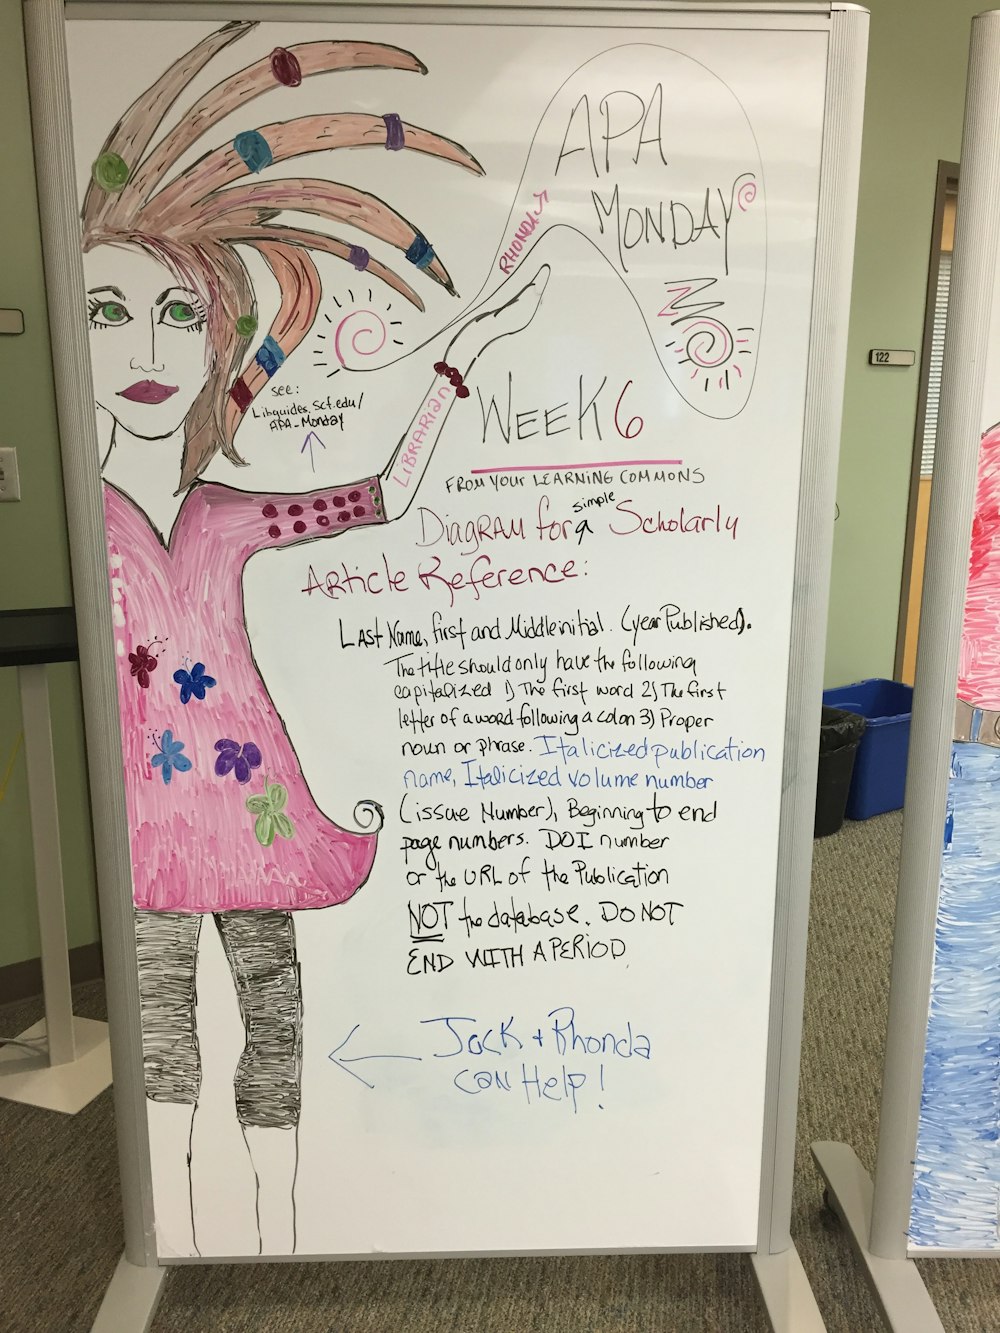 APA
MONDAY
RHONDA J
LIBRARIAN
see:
Libguides.scf.edu/
APA-Monday
WEEK 6
FROM YOUR LEARNING COMMONS
Diagram for a simple Scholarly
Article Reference:
Last Name, first and Middle initial. (year Published).
The title should only have the following
capitalized 1) The first word 2) The first
letter of a word following a colon 3) Proper
noun or phrase. Italicized publication
name, Italicized volume number
(issue Number), Beginning to end
page numbers. DOI number
or the URL of the Publication
NOT the database. DO NOT
END WITH A PERIOD
Jack + Rhonda
can Help!
122